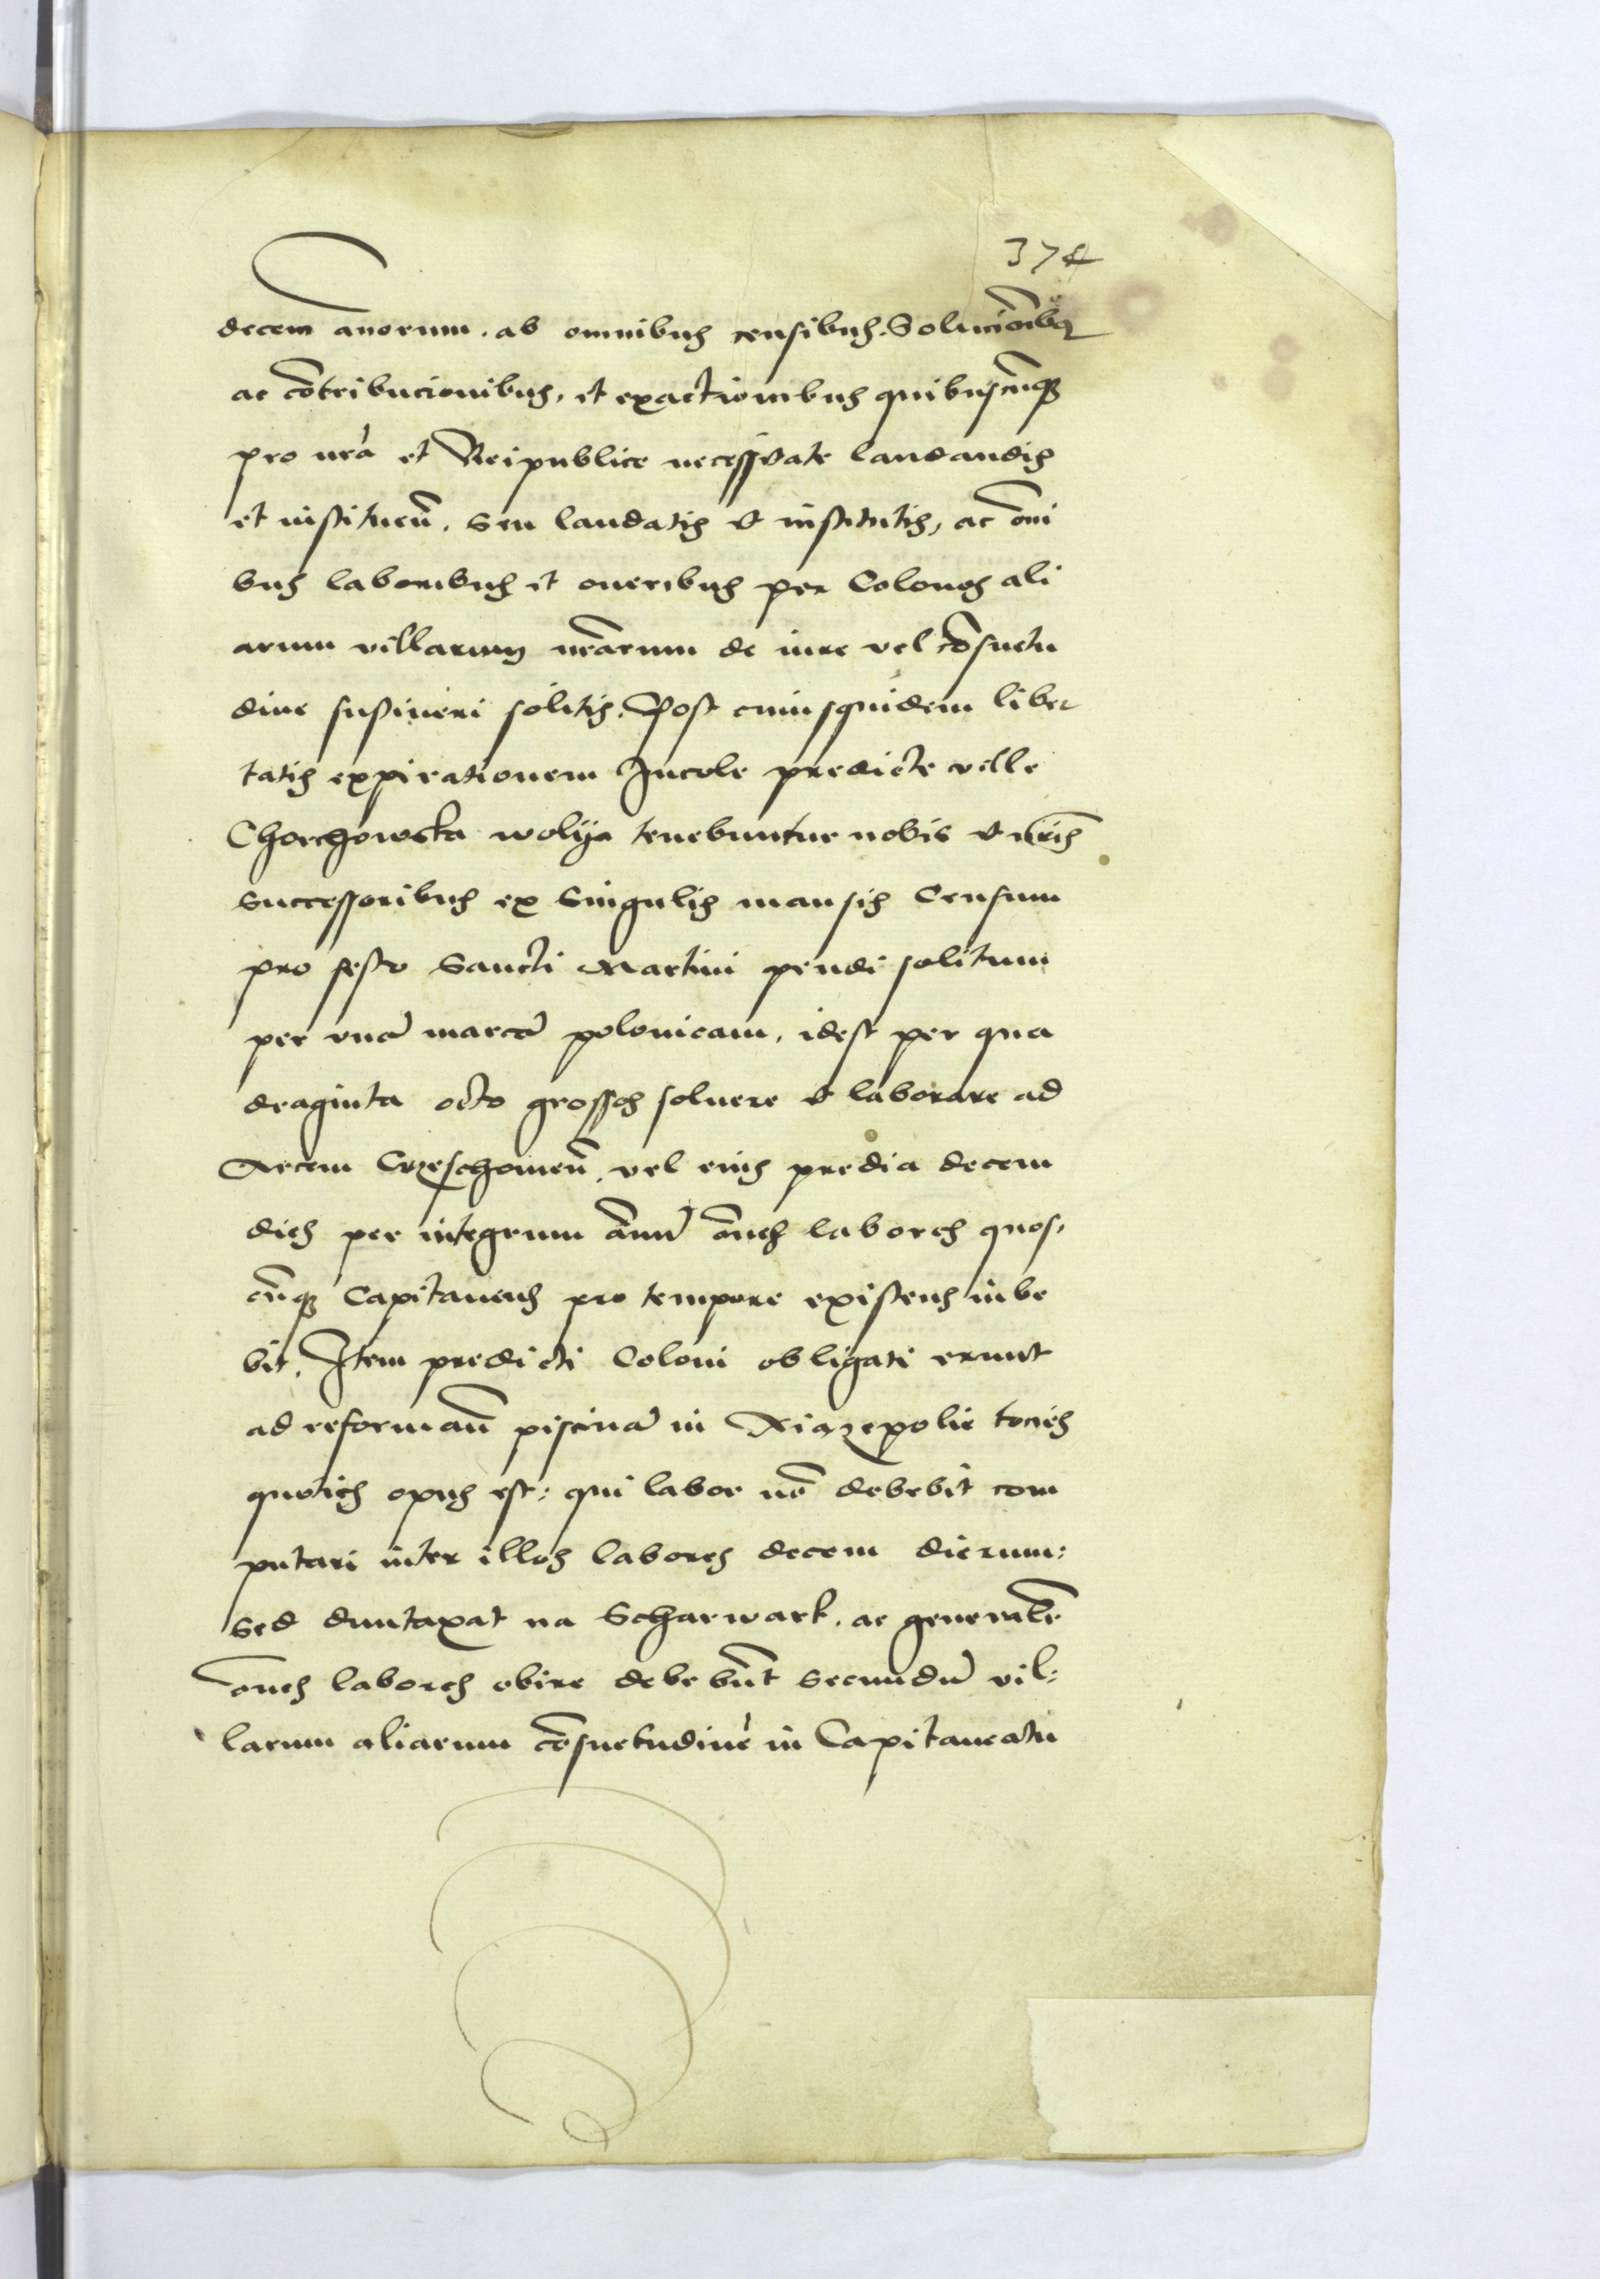 374
decem anorum. ab omnibus censibus. Solucionibus
ac cōtribucionibus, et exactionibus quibuscūq
pro nrā et Reipublice necessitate laudandis
et instituen̄. seu laudatis et institutis, ac om̄i
bus laboribus et oneribus per Colonos ali
arum villarum nrārum de iure vel cōsuetu
dine sustineri solitis. Post cuiusquidem liber
tatis expirationem Incole predicte ville
Chorchowska wolya tenebuntur nobis et nrīs
Successoribus ex Singulis mansis Censum
pro festo Sancti Martini pendi solitum
per vnā marcā polonicam, idest per qua
draginta octo grossos soluere et laborare ad
Arcem Crzeschowien̄. vel eius predia decem
dies per integrum annū om̄es labores quos,
cūq Capitaneus pro tempore existens iube
bit. Item predicti Coloni obligati erunt
ad reforman̄ piscinā in Xiazepolie tocies
quoties opus est: qui labor nō debebit com
putari inter illos labores decem dierum:
Sed duntaxat na Scharwark. ac generalr̄
om̄es labores obire debebūt Secundū vil:
larum aliarum cōsuetudinē in Capitaneatu